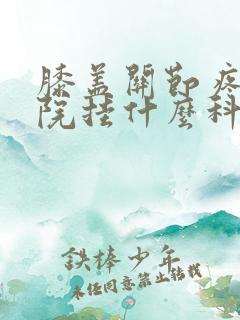 膝盖關節疼
院挂什麼科
鐵棒少年
未经同意禁止轉載